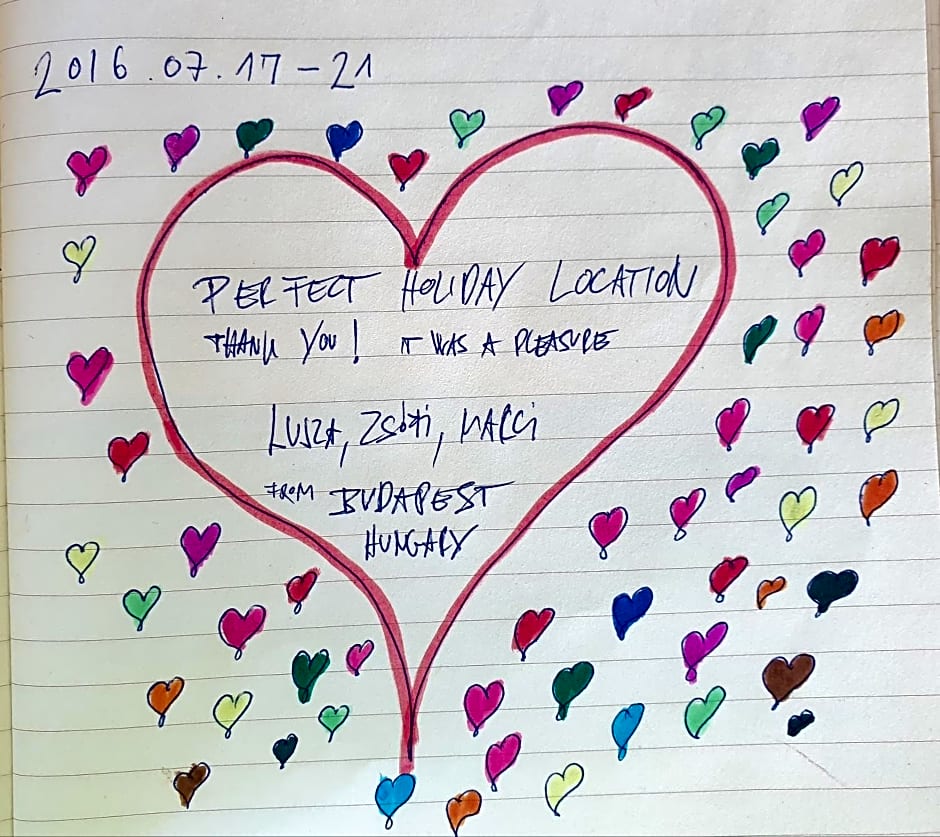 2016.07.17-21
PERFECT HOLIDAY LOCATION
THANK YOU! IT WAS A PLEASURE
Zsóti, MARCI
FROM BUDAPEST
HUNGARY